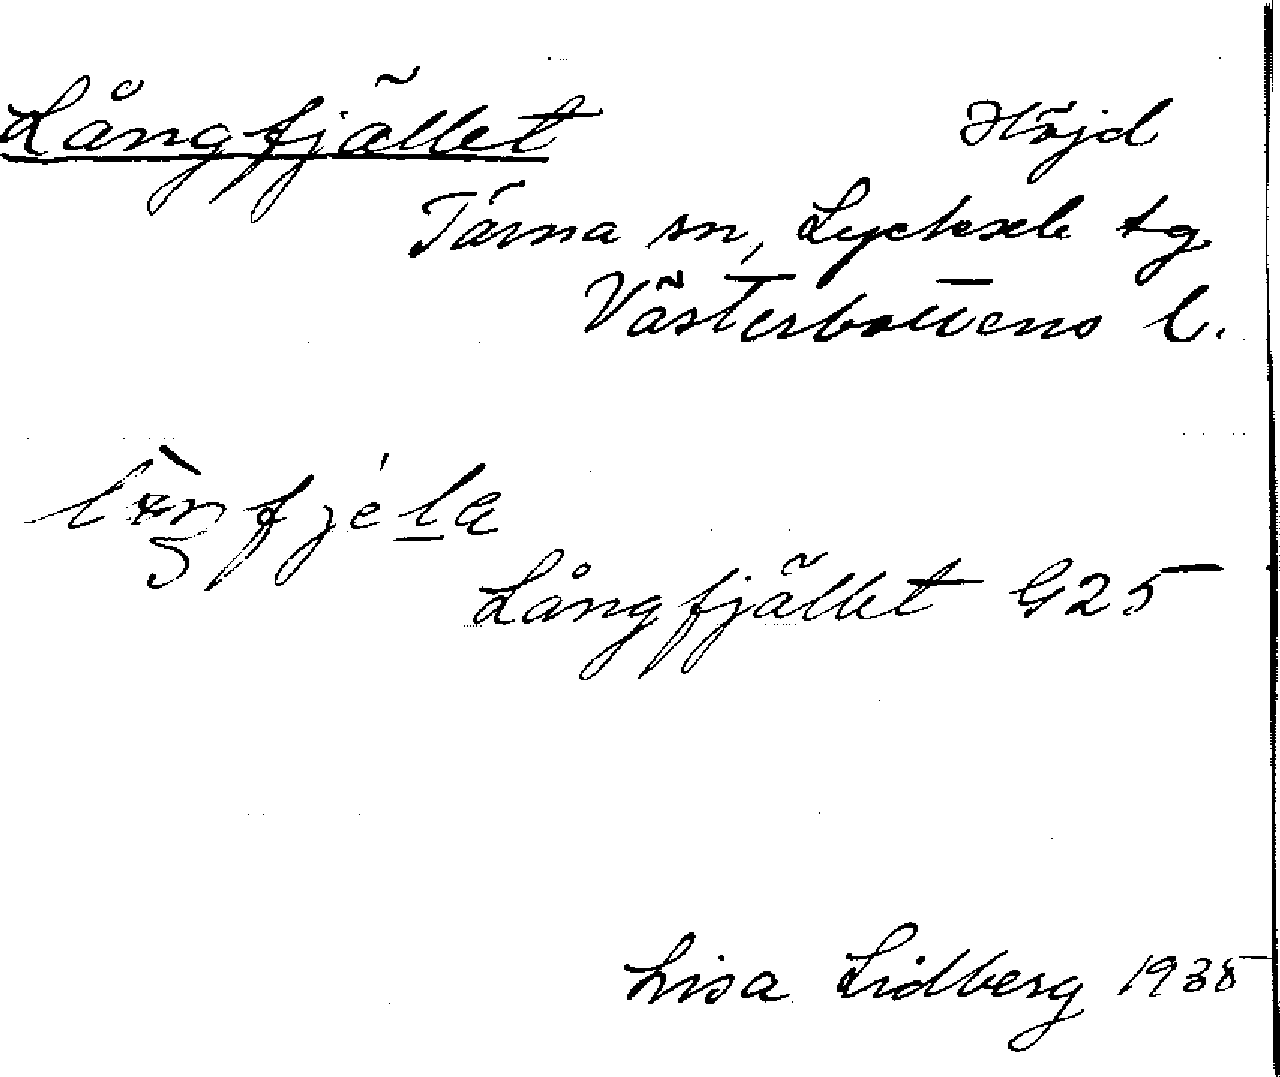 Långfjället Höjd
Tärna sn, Lycksele tg
Västerbottens l.
Långfjället G25
Lisa Lidberg